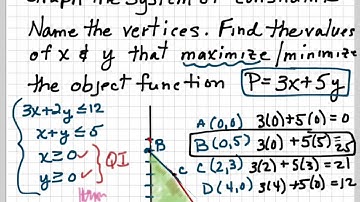 Graph the system of constraints
Name the vertices. Find the values
of x & y that maximize/minimize
the object function P=3x+5y
3x+2y≤12
x+y≤5
x≥0 ✓
y≥0 ✓
QI
A (0,0) 3(0)+5(0)=0
B (0,5) 3(0)+5(5)=25
C (2,3) 3(2)+5(3)=21
D (4,0) 3(4)+5(0)=12
B
C